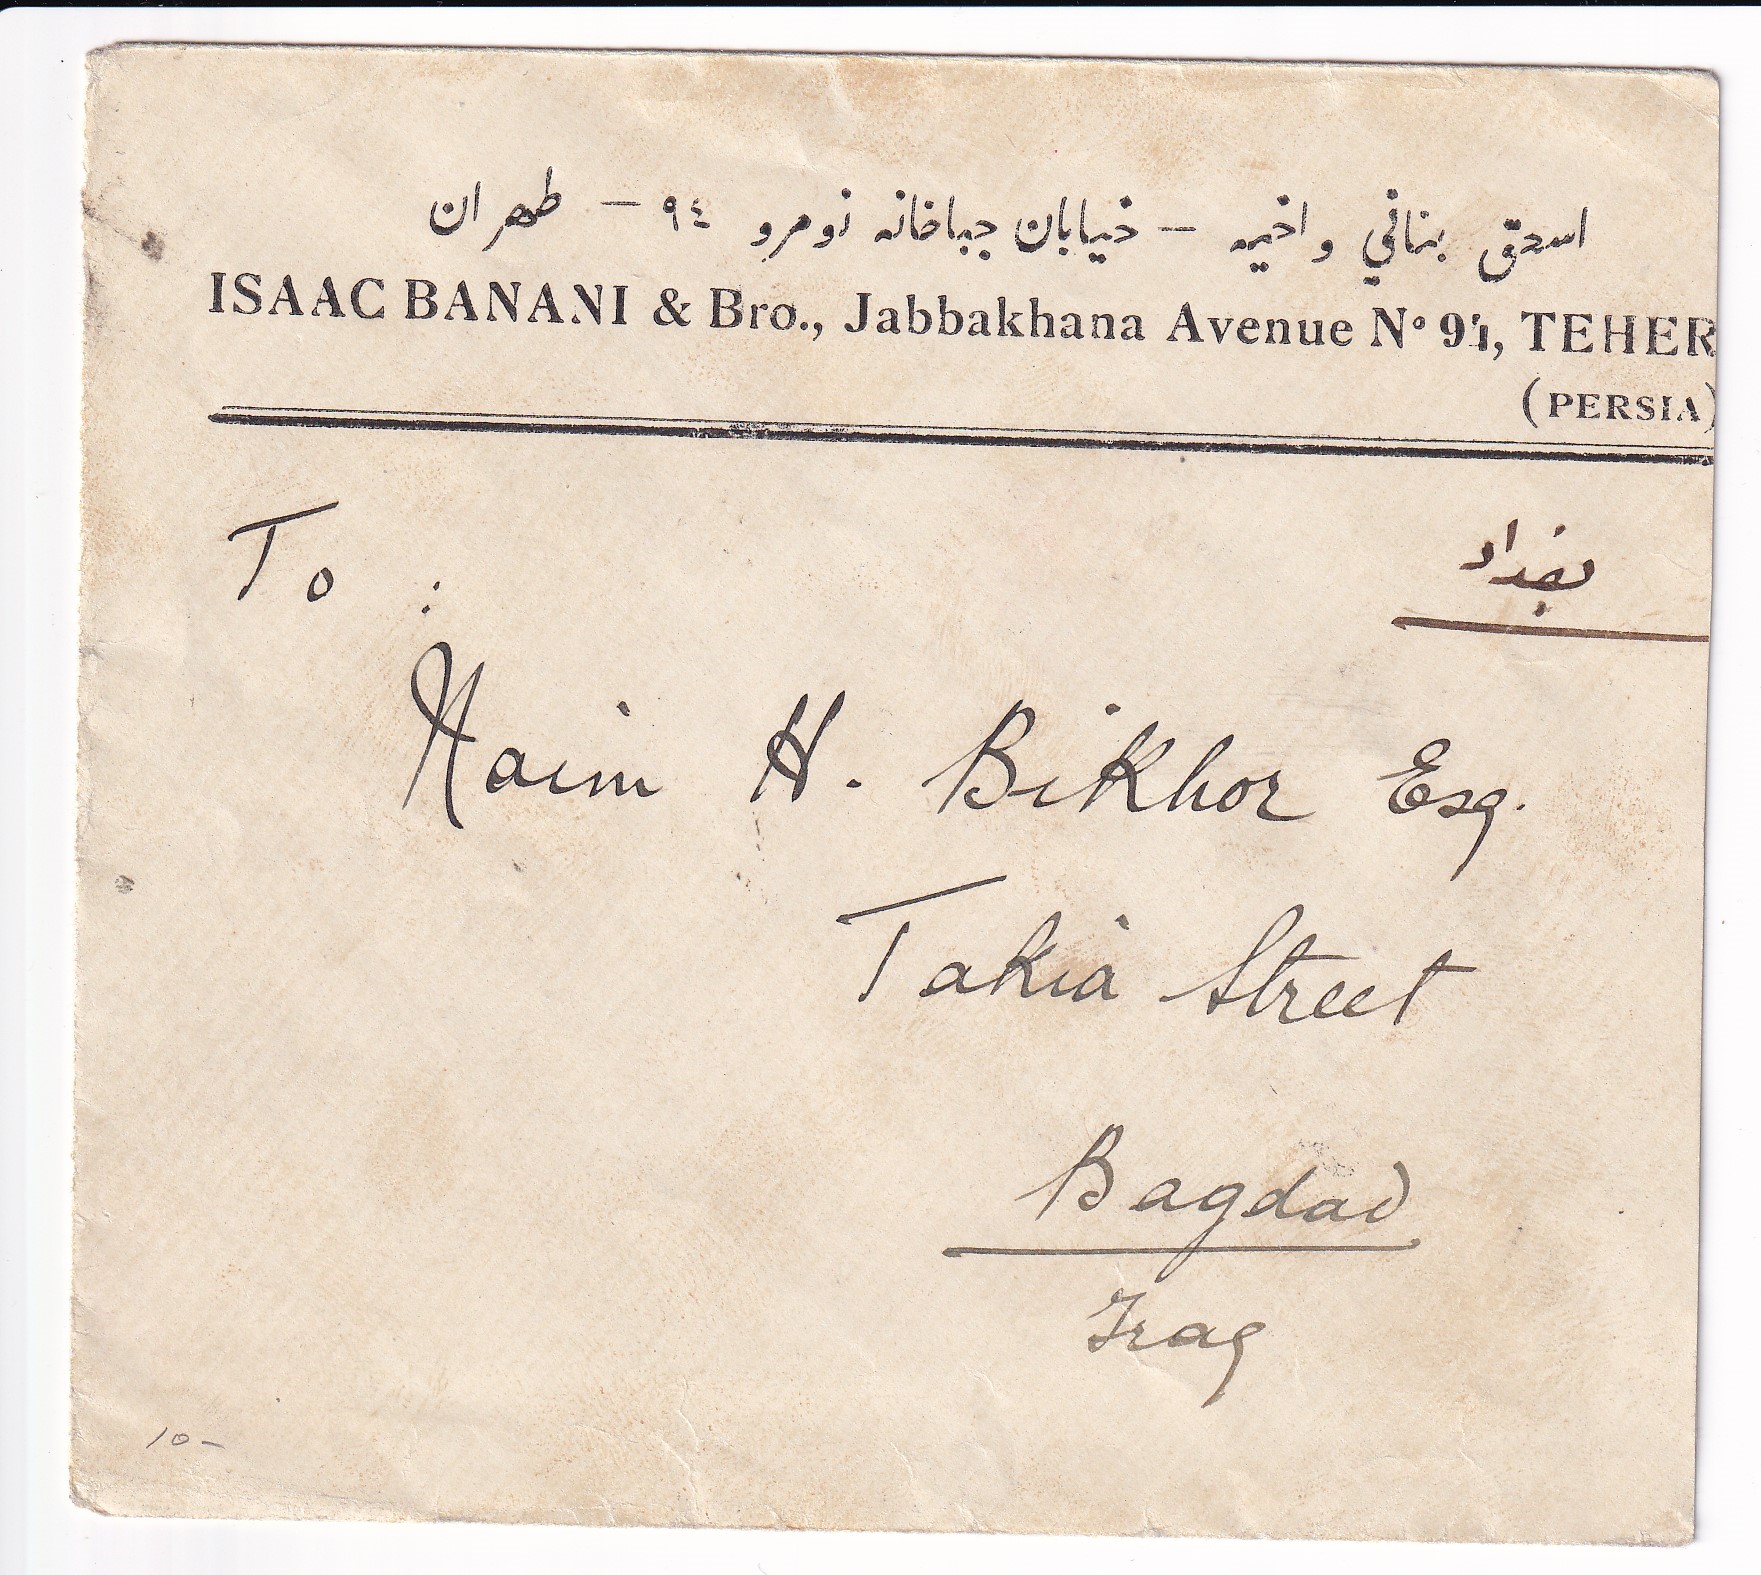 اسحق بناني واخيه — خيابان جباخانه نومرو ٩٤ — طهران
ISAAC BANANI & Bro., Jabbakhana Avenue Nº 94, TEHER
(PERSIA)
بغداد
To :
Naim H. Bikhor Esq.
Takia Street
Bagdad
Iraq
10-